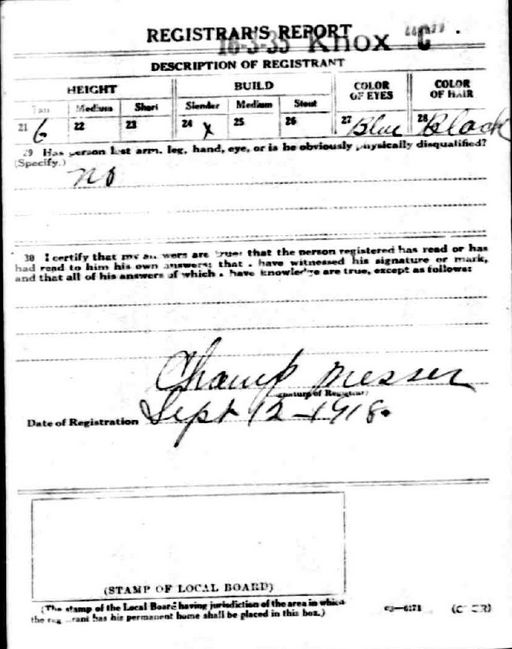 REGISTRAR'S REPORT
16-3-35 Knox C
DESCRIPTION OF REGISTRANT
HEIGHT BUILD COLOR OF EYES COLOR OF HAIR
Tall Medium Short Slender Medium Stout
21 6 22 23 24 x 25 26 27 Blue 28 Black
29 Has person lost arm, leg, hand, eye, or is he obviously physically disqualified?
(Specify.) no
30 I certify that my answers are true; that the person registered has read or has
had read to him his own answers; that I have witnessed his signature or mark,
and that all of his answers of which I have knowledge are true, except as follows:
Champ Messer
(Signature of Registrar)
Date of Registration Sept 12-1918.
(STAMP OF LOCAL BOARD)
(The stamp of the Local Board having jurisdiction of the area in which
the registrant has his permanent home shall be placed in this box.)
03—6171 (OVER)